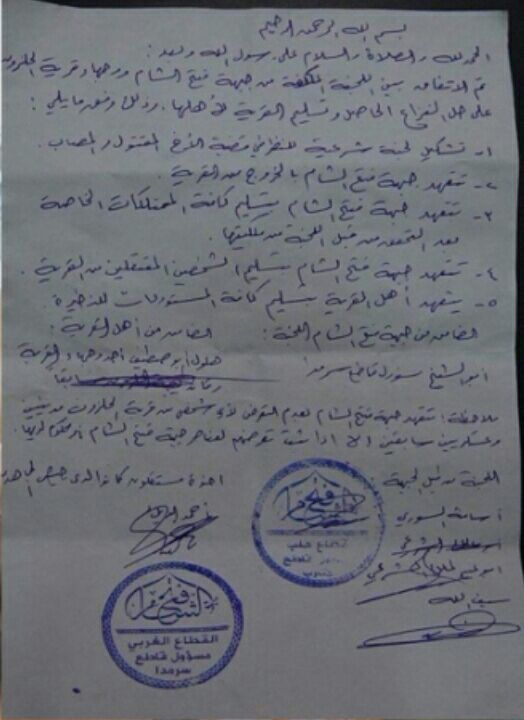 بسم الله الرحمن الرحيم
الحمد لله والصلاة والسلام على رسول الله وبعد:
تم الاتفاق بين اللجنة المكلفة من جبهة فتح الشام ووجهاء قرية الحلزون
على حل النزاع الحاصل وتسليم القرية لأهلها. وذلك وفق ما يلي:
١- تشكيل لجنة شرعية للنظر في قضية الأخ المقتول والمصاب.
٢- تتعهد جبهة فتح الشام بالخروج من القرية.
٣- تتعهد جبهة فتح الشام بتسليم كافة الممتلكات الخاصة
بعد التحقق من قبل اللجنة من ملكيتها.
٤- تتعهد جبهة فتح الشام بتسليم الشخصين المعتقلين من القرية.
٥- يتعهد أهل القرية بتسليم كافة المستودلات للذخيرة.
الضامن من جبهة فتح الشام اللجنة: الضامن من أهل القرية:
أبو الشيخ مسؤول قاطع سرمدا
أحد وجهاء القرية
سابقا
ملاحظة: تتعهد جبهة فتح الشام بعدم التعرض لأي شخص من قرية الحلزون مدنيين
وعسكريين سابقين إلا إذا ثبت تعرضهم لعناصر جبهة فتح الشام
اللجنة من قبل الجبهة
أسامة السوري
سيف الله
فتح الشام
قطاع حلب
فتح الشام
القطاع الغربي
مسؤول قاطع
سرمدا